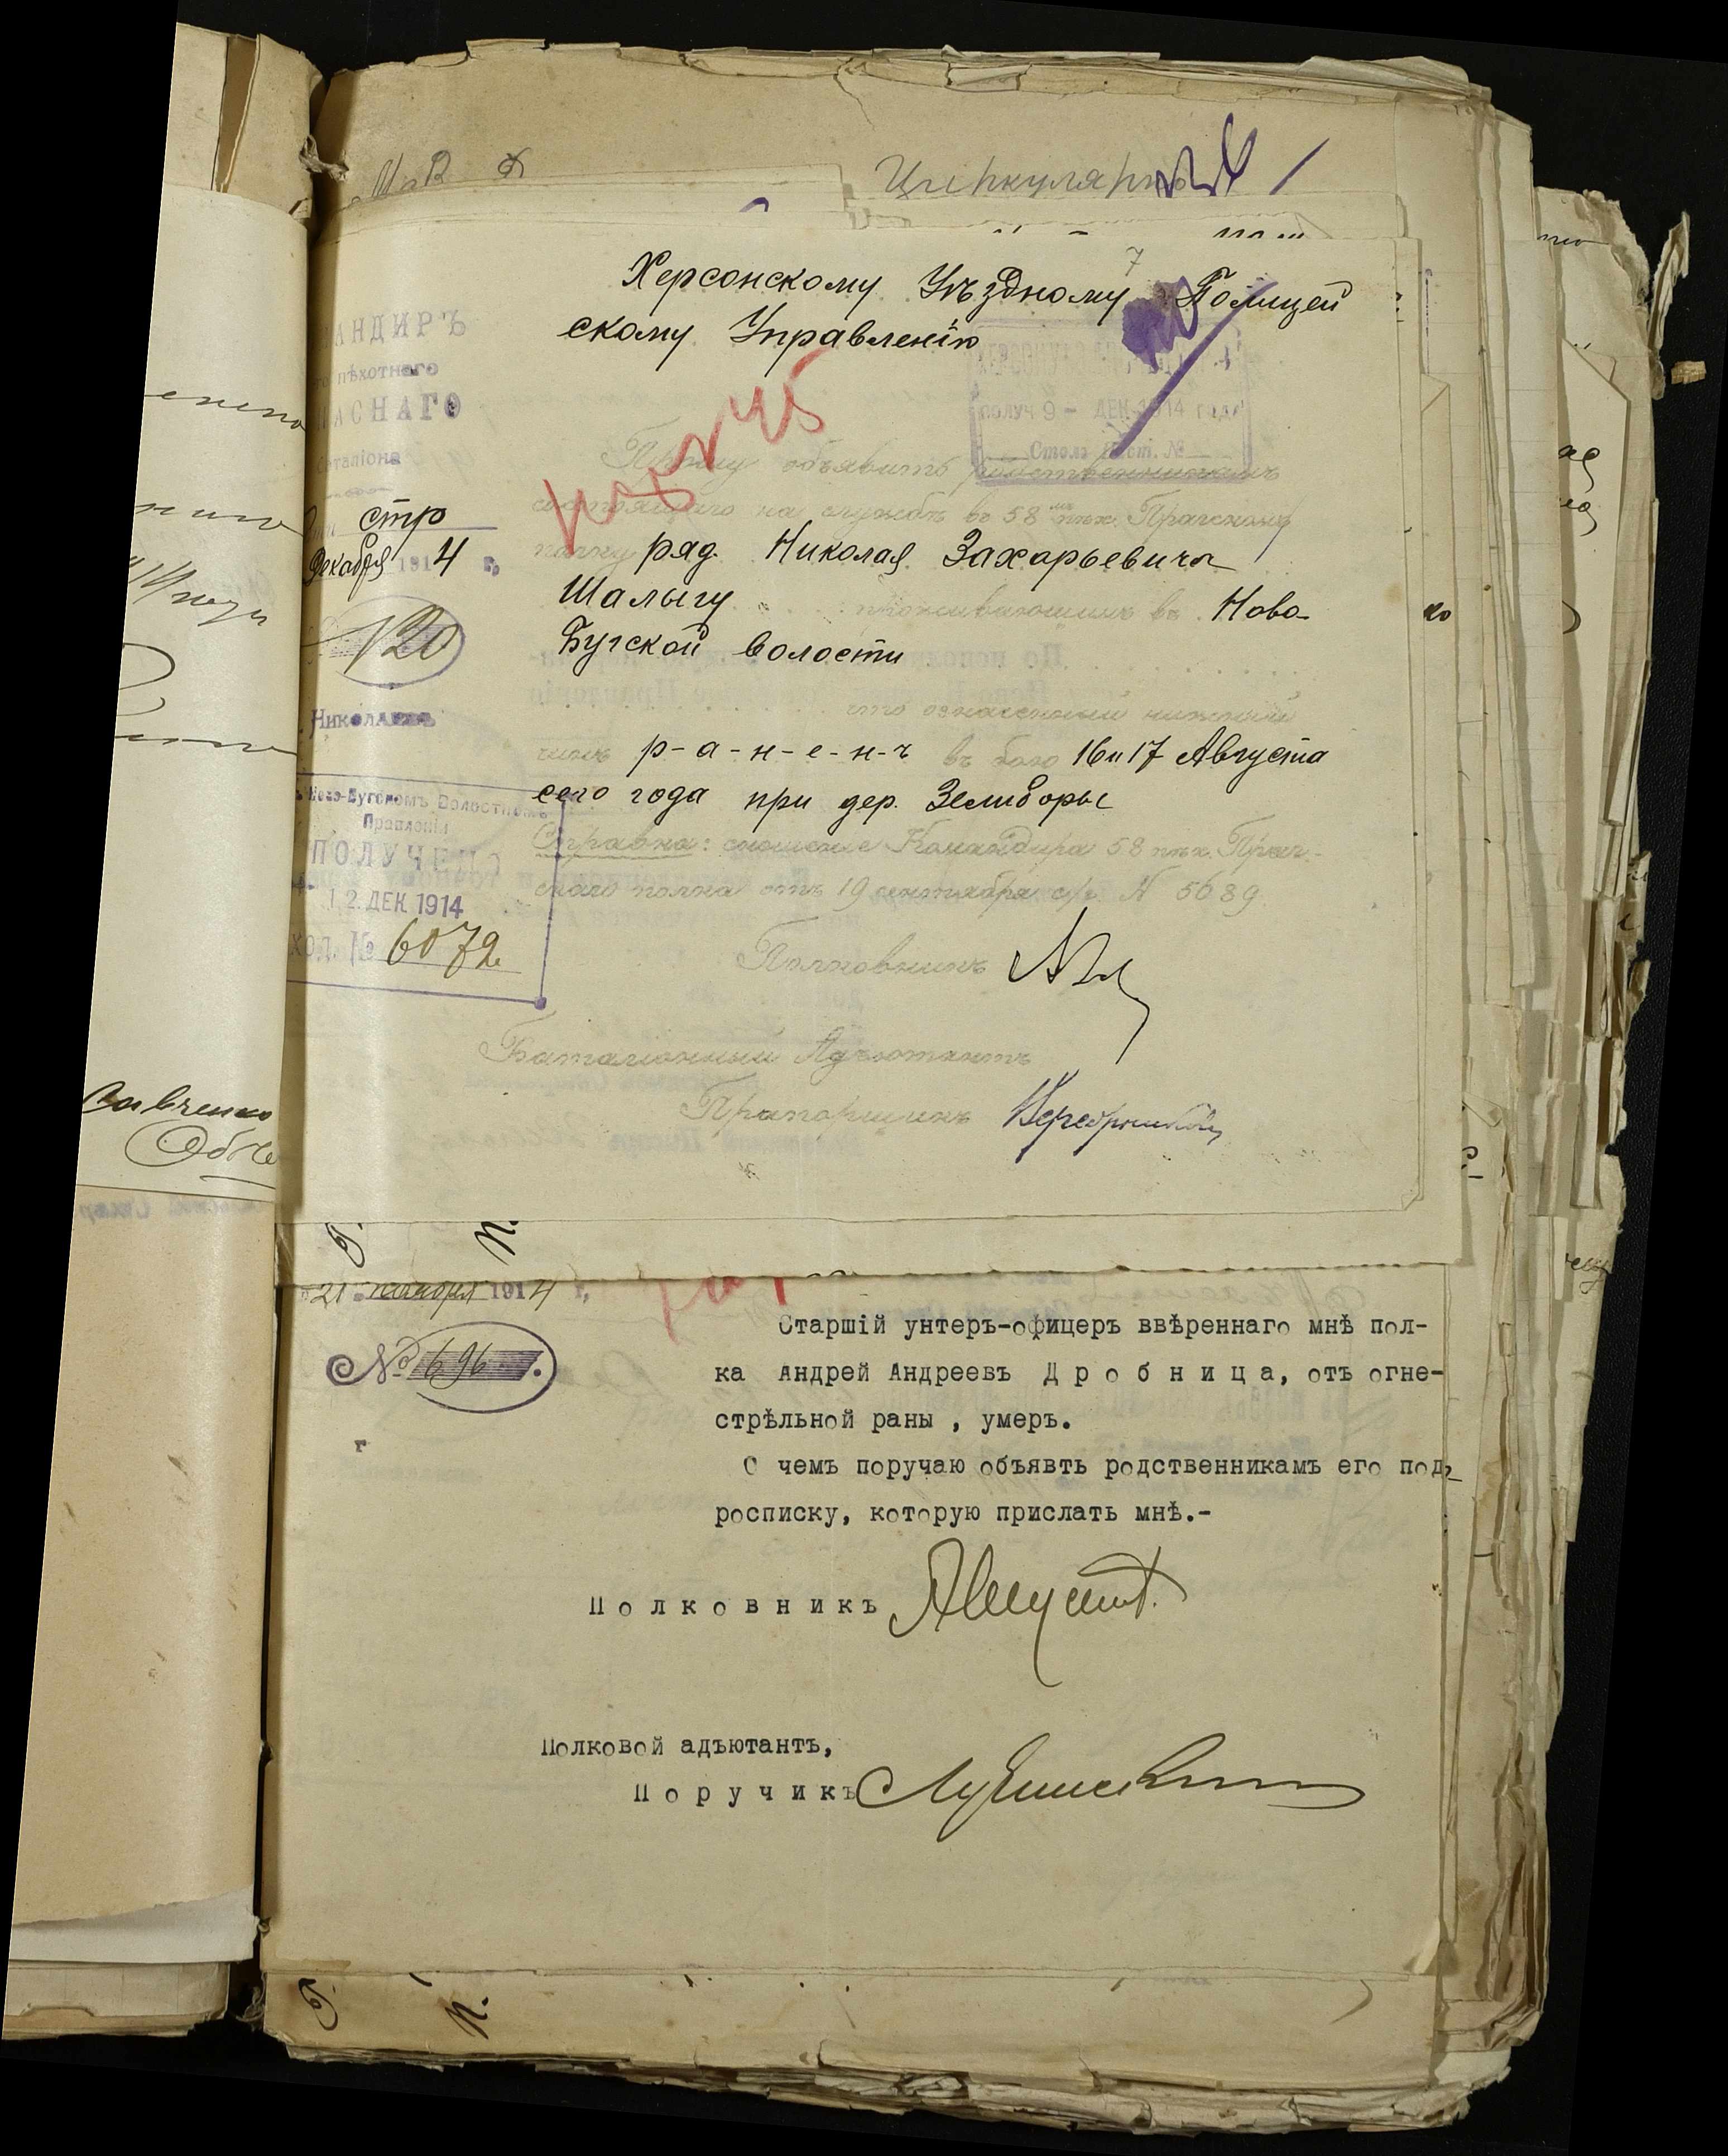 Циркулярно
7
Херсонскому Уѣздному Полицей
скому Управленію
АНДИРЪ
пѣхотнаго
АСНАГО
баталіона
стр
Декабря 1914 г.
120
Николаевъ
ПОЛУЧ 9 - ДЕК 1914 года
Столъ №
Прошу объявить родственникамъ
состоящаго на службѣ въ 58 мъ пѣх. Прагскомъ
полку ряд. Николая Захарьевича
Шалыгу проживающимъ въ Ново-
Бугской волости
что означенный нижній
чинъ р-а-н-е-н-ъ въ бою 16 и 17 Августа
сего года при дер. Зелиборы
Справка: сношение Командира 58 пѣх. Праг-
скаго полка отъ 19 сентября с/г. N 5689.
Полковникъ
Баталіонный Адъютантъ
Прапорщикъ
Ново-Бугскомъ Волостномъ
Правленіи
ПОЛУЧЕНО
12 ДЕК 1914
ХОД. № 6072
Савченко
21 ноября 1914 г.
№ 696.
Старшій унтеръ-офицеръ ввѣреннаго мнѣ пол-
ка Андрей Андреевъ Дробница, отъ огне-
стрѣльной раны , умеръ.
О чемъ поручаю объявть родственникамъ его под-
росписку, которую прислать мнѣ.-
Полковникъ
Полковой адъютантъ,
Поручикъ